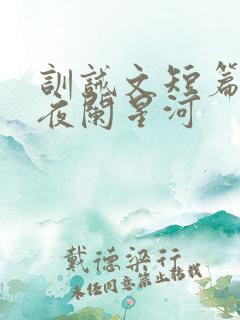 訓誡文短篇
夜闌星河
戴德梁行
未经同意禁止转载